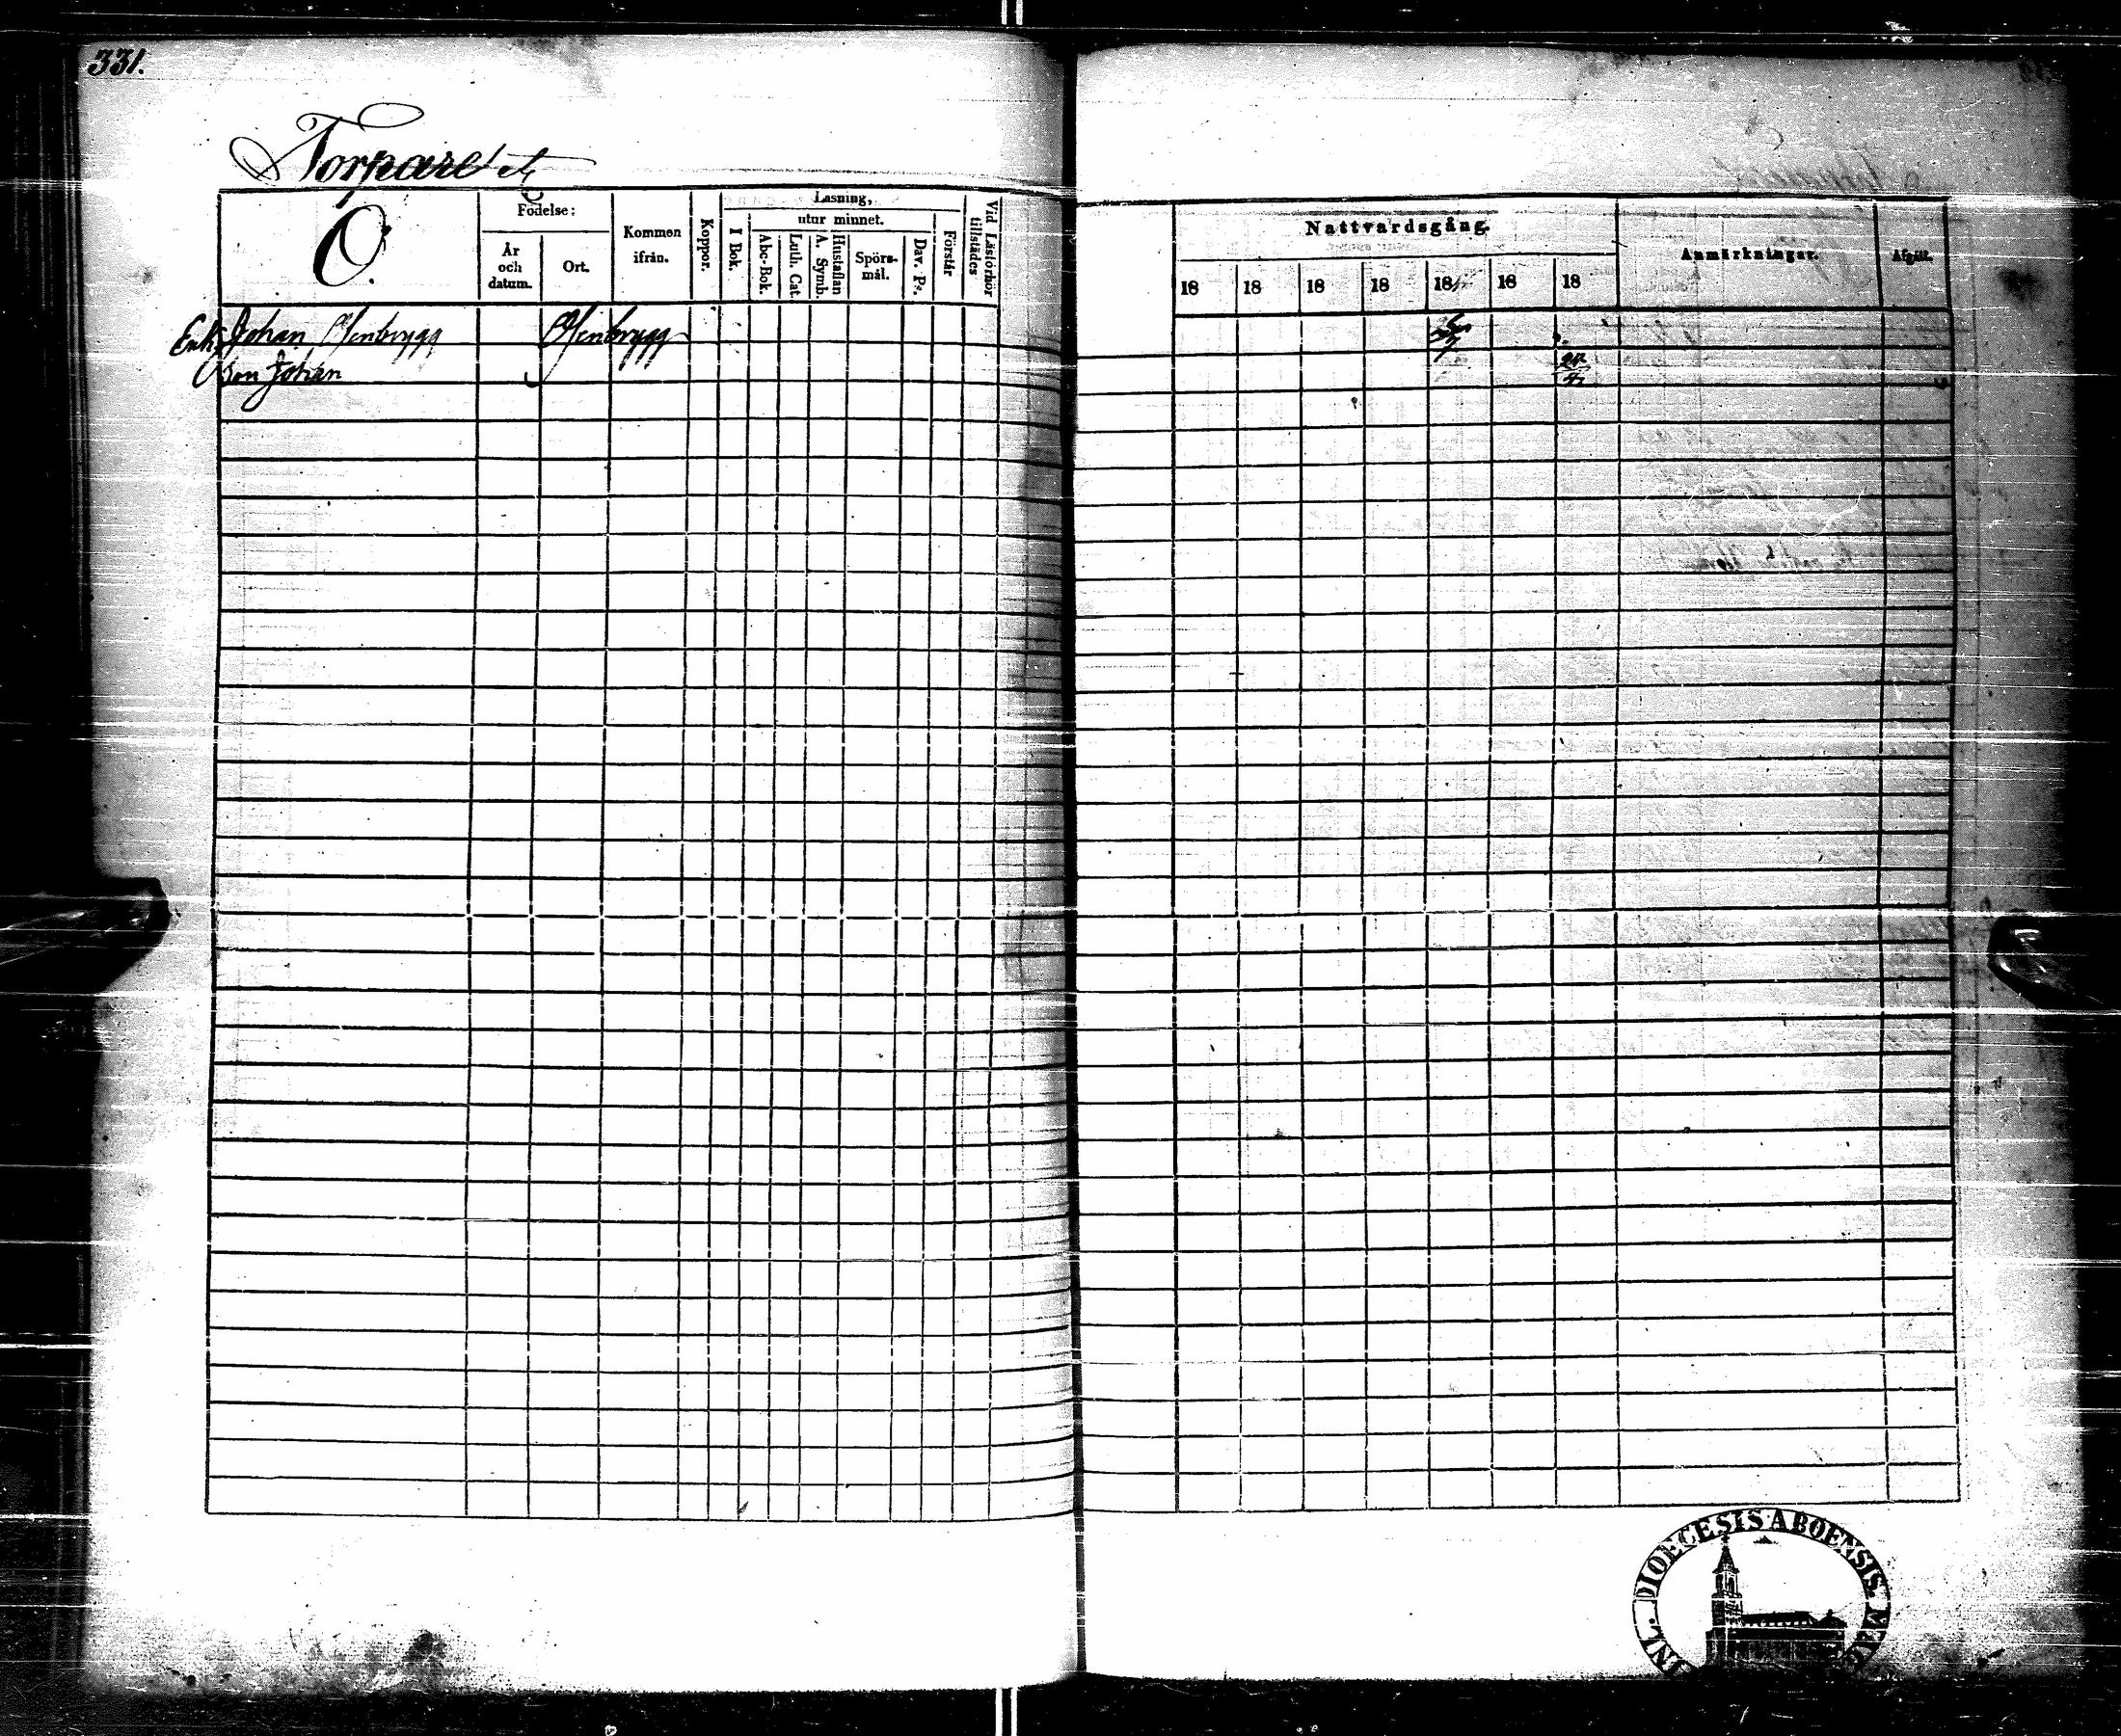 331.
Torpare
O.
Födelse:
År
och
datum.
Ort.
Kommen
ifrån.
Koppor.
Läsning,
utur minnet.
I Bok.
Abc-Bok.
Luth. Cat.
A. Symb.
Hustaflan
Spörs-
mål.
Dav. Ps.
Förstår
Vid Läsförhör
tillstädes
Nattvardsgång.
18 18 18 18 18 18 18
Anmärkningar.
Afgått.
Enkl. Johan
Son Johan
24
4
DIOECESIS ABOENSIS.